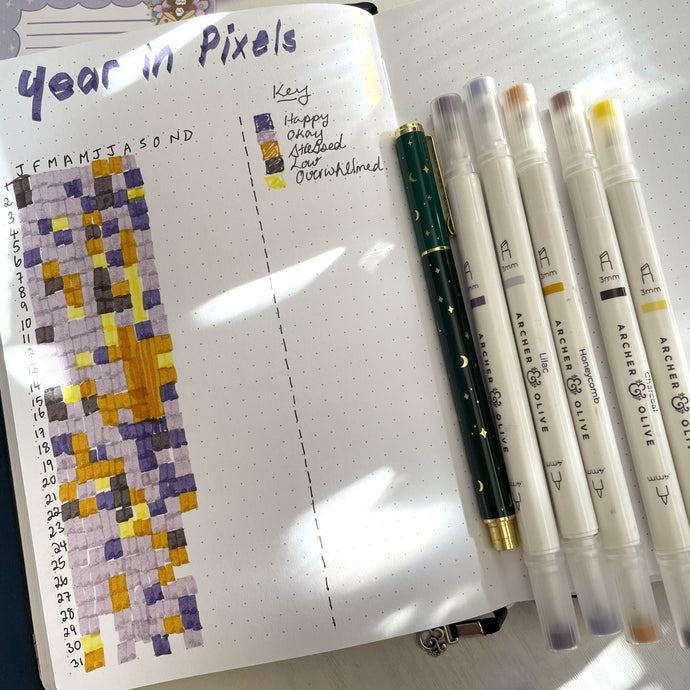 Year in Pixels
Key
Happy
Okay
Stressed
Low
Overwhelmed
J F M A M J J A S O N D
1
2
3
4
5
6
7
8
9
10
11
12
13
14
15
16
17
18
19
20
21
22
23
24
25
26
27
28
29
30
31
3mm
3mm
3mm
3mm
ARCHER & OLIVE
ARCHER & OLIVE
Lilac
ARCHER & OLIVE
Honeycomb
ARCHER & OLIVE
Charcoal
ARCHER & OLIVE